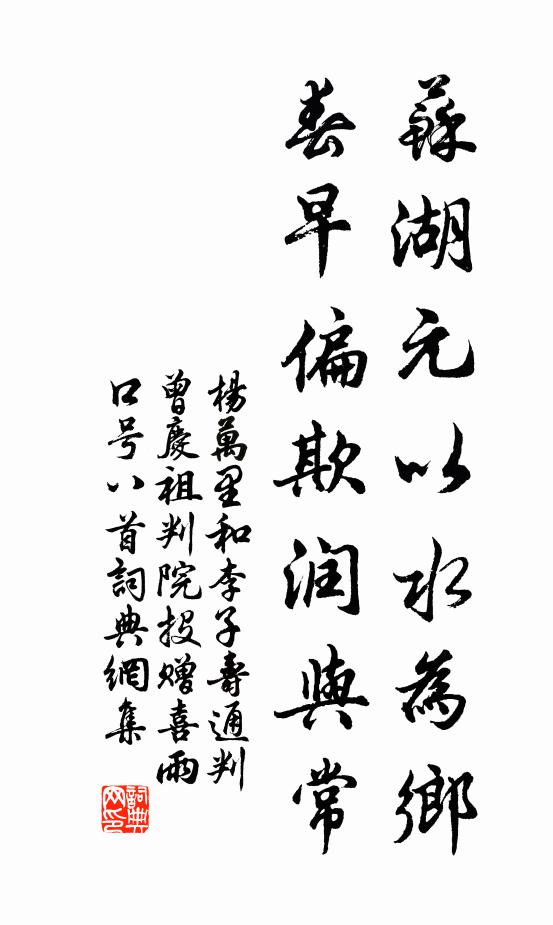 蘇湖元以水為鄉
春早偏欺润與常
楊萬里和李子壽通判
曾慶祖判院投贈喜雨
口号八首詞典網集
詞典网印